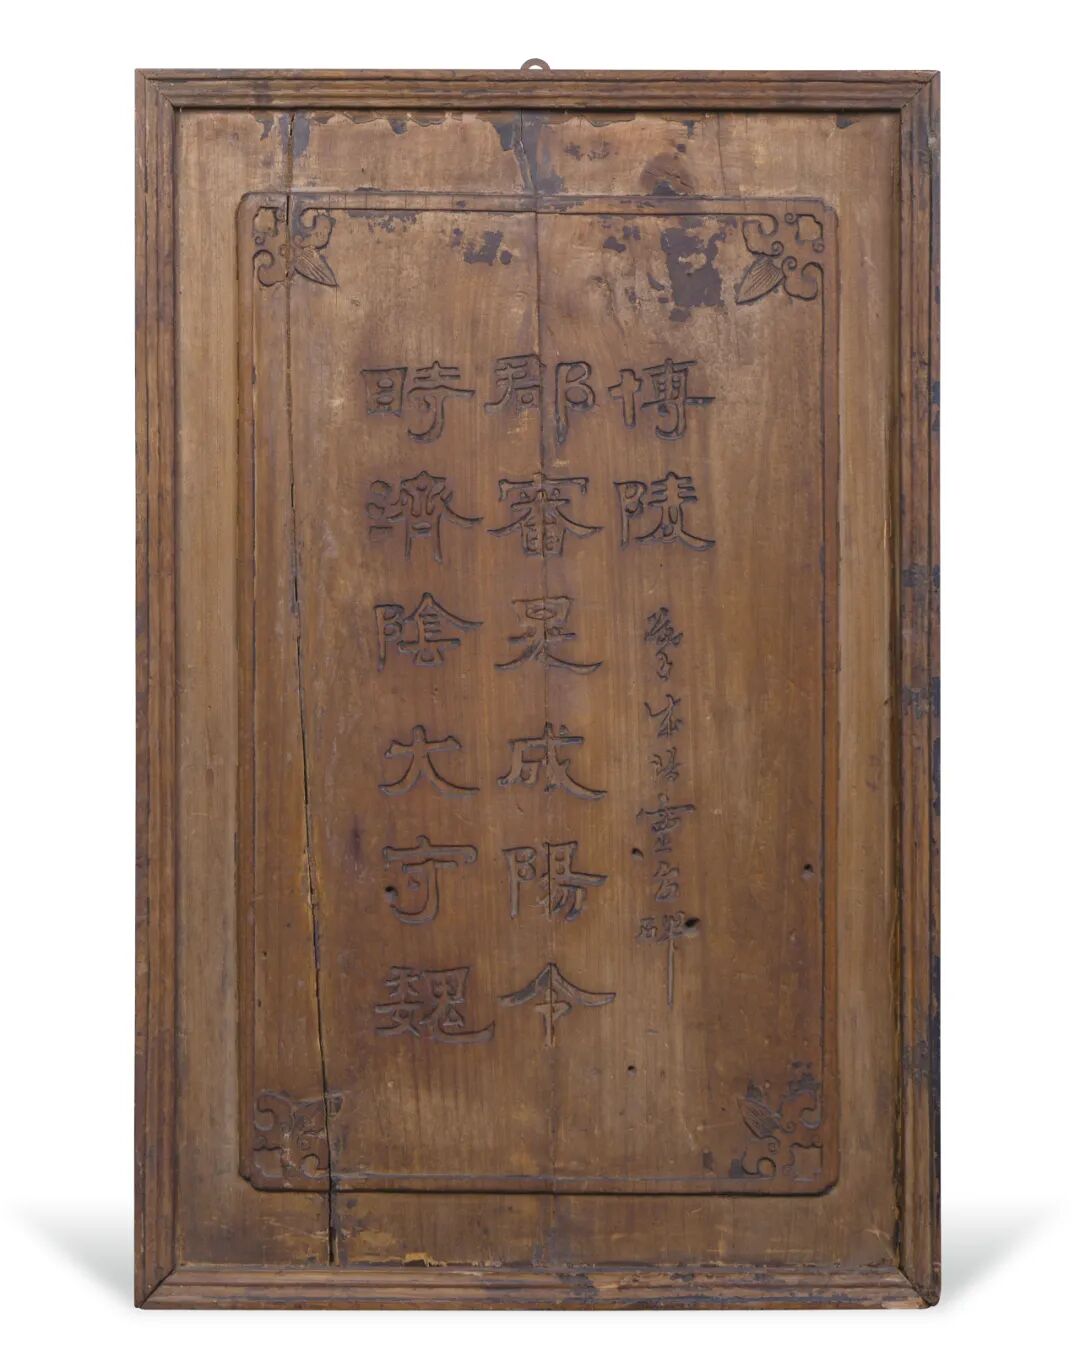 時濟陰大守魏
郡審晃成陽令
博陵
摹成陽靈台碑